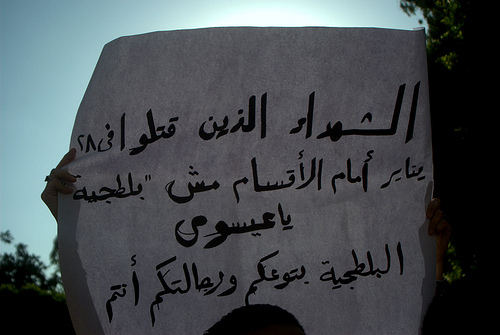 الشهداء الذين قتلوا فى ٢٨
يناير أمام الأقسام مش "بلطجية"
يا عيسوى
البلطجية بتوعكم ورجالتكم أنتم